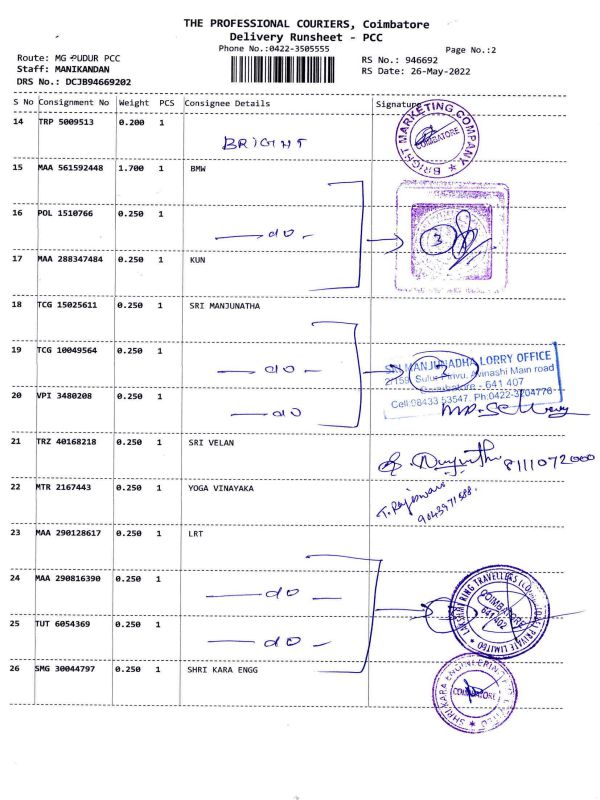 THE PROFESSIONAL COURIERS, Coimbatore
Delivery Runsheet - PCC
Phone No.:0422-3505555
Page No.:2
Route: MG PUDUR PCC
RS No.: 946692
Staff: MANIKANDAN
RS Date: 26-May-2022
DRS No.: DCJB94669202
S No Consignment No Weight PCS Consignee Details Signature
14 TRP 5009513 0.200 1 BRIGHT
BRIGHT MARKETING COMPANY ★
COIMBATORE
15 MAA 561592448 1.700 1 BMW
16 POL 1510766 0.250 1 — do —
3
17 MAA 288347484 0.250 1 KUN
18 TCG 15025611 0.250 1 SRI MANJUNATHA
19 TCG 10049564 0.250 1 — do —
3
SRI MANJUNADHA LORRY OFFICE
2/159, Sulur Pirivu, Avinashi Main road
Coimbatore - 641 407
Cell:98433 53547. Ph:0422-3204776
20 VPI 3480208 0.250 1 — do
21 TRZ 40168218 0.250 1 SRI VELAN
8111072000
22 MTR 2167443 0.250 1 YOGA VINAYAKA
T. Rajeswari
9043971588.
23 MAA 290128617 0.250 1 LRT
24 MAA 290816390 0.250 1 — do —
25 TUT 6054369 0.250 1 — do —
COIMBATORE
641 402
26 SMG 30044797 0.250 1 SHRI KARA ENGG
COIMBATORE